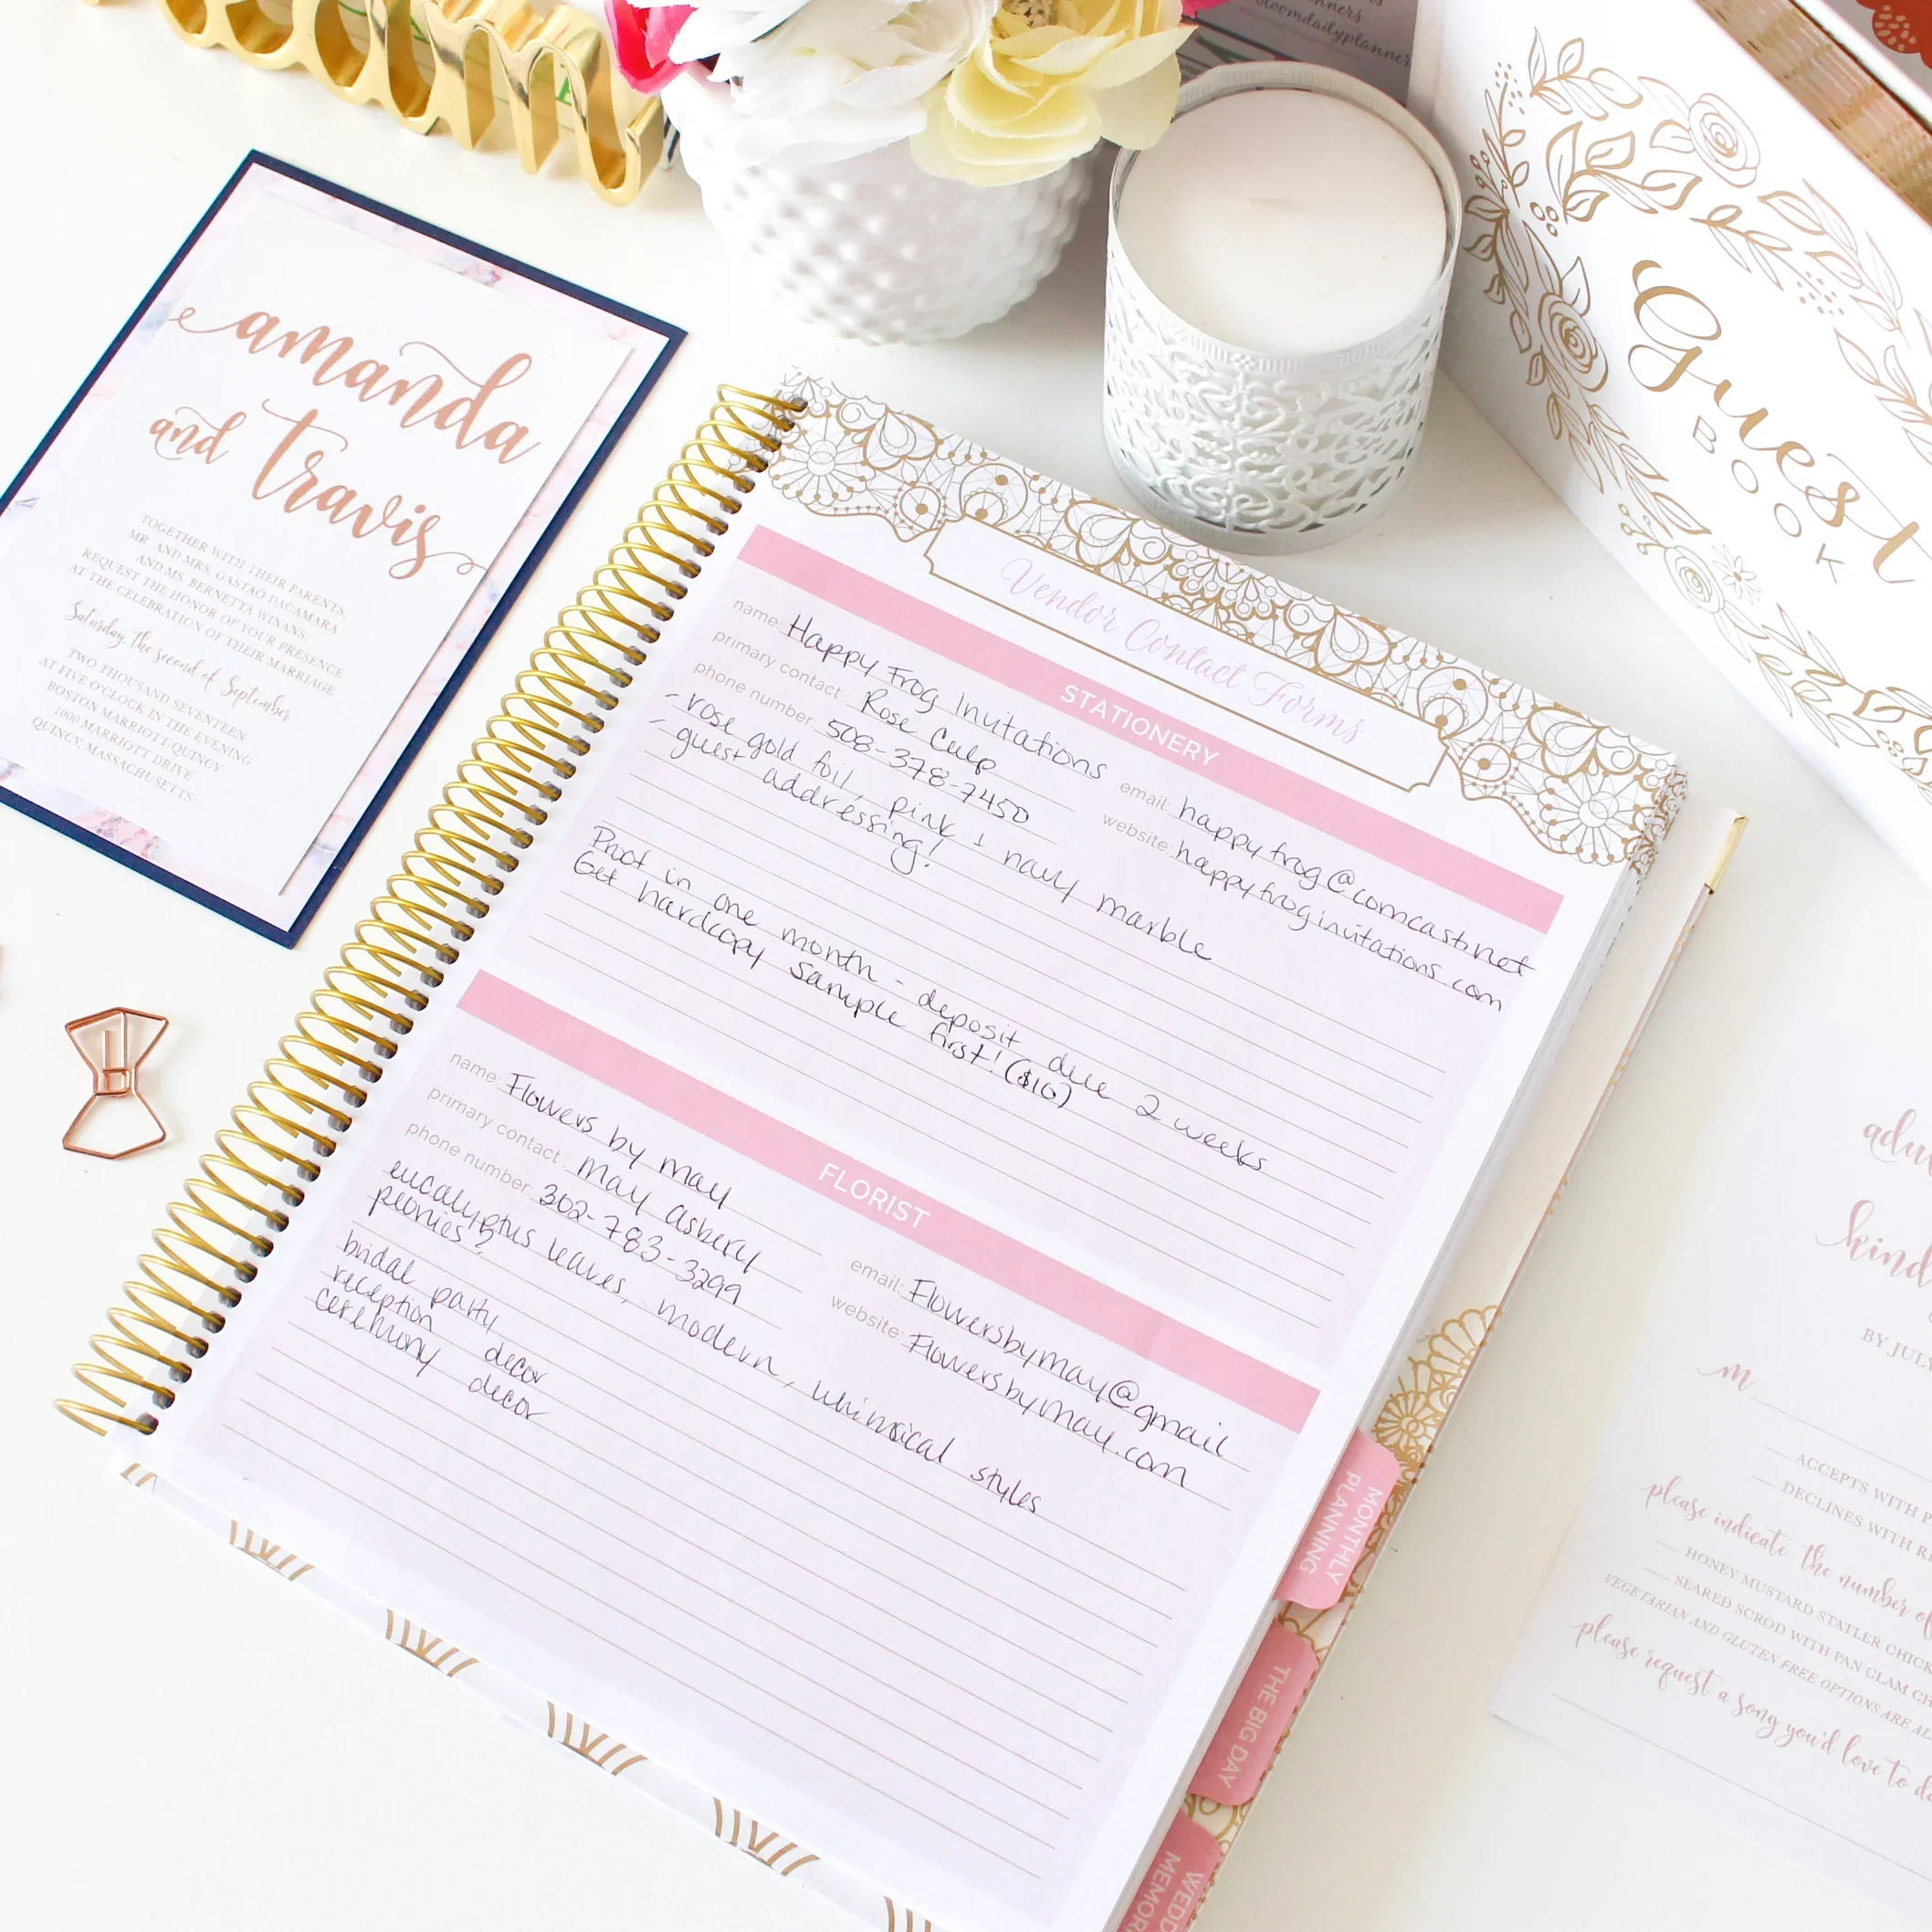 amanda
and travis
TOGETHER WITH THEIR PARENTS,
MR. AND MRS. GASTAO DACAMARA
AND MS. BERNETTA WINANS,
REQUEST THE HONOR OF YOUR PRESENCE
AT THE CELEBRATION OF THEIR MARRIAGE
Saturday, the second of September
TWO THOUSAND SEVENTEEN
AT FIVE O'CLOCK IN THE EVENING
BOSTON MARRIOTT-QUINCY
1000 MARRIOTT DRIVE
QUINCY, MASSACHUSETTS
Guest
BOOK
Vendor Contact Forms
STATIONERY
name: Happy Frog Invitations
primary contact: Rose Culp
phone number: 508-378-7450
email: happyfrog@comcast.net
website: happyfroginvitations.com
- rose gold foil, pink + navy marble
- guest addressing!
Proof in one month - deposit due 2 weeks
Get hardcopy sample first! ($10)
FLORIST
name: Flowers by may
primary contact: May Asbery
phone number: 302-783-3299
email: Flowersbymay@gmail
website: Flowersbymay.com
eucalyptus leaves, modern, whimsical styles
peonies?
bridal party
reception decor
ceremony decor
MONTHLY
PLANNING
THE BIG DAY
BY JULY
m
ACCEPTS WITH
DECLINES WITH
please indicate the number of
HONEY MUSTARD STATLER
SEARED SCROD WITH PAN CLAM
VEGETARIAN AND GLUTEN FREE OPTIONS ARE
please request a song you'd love to